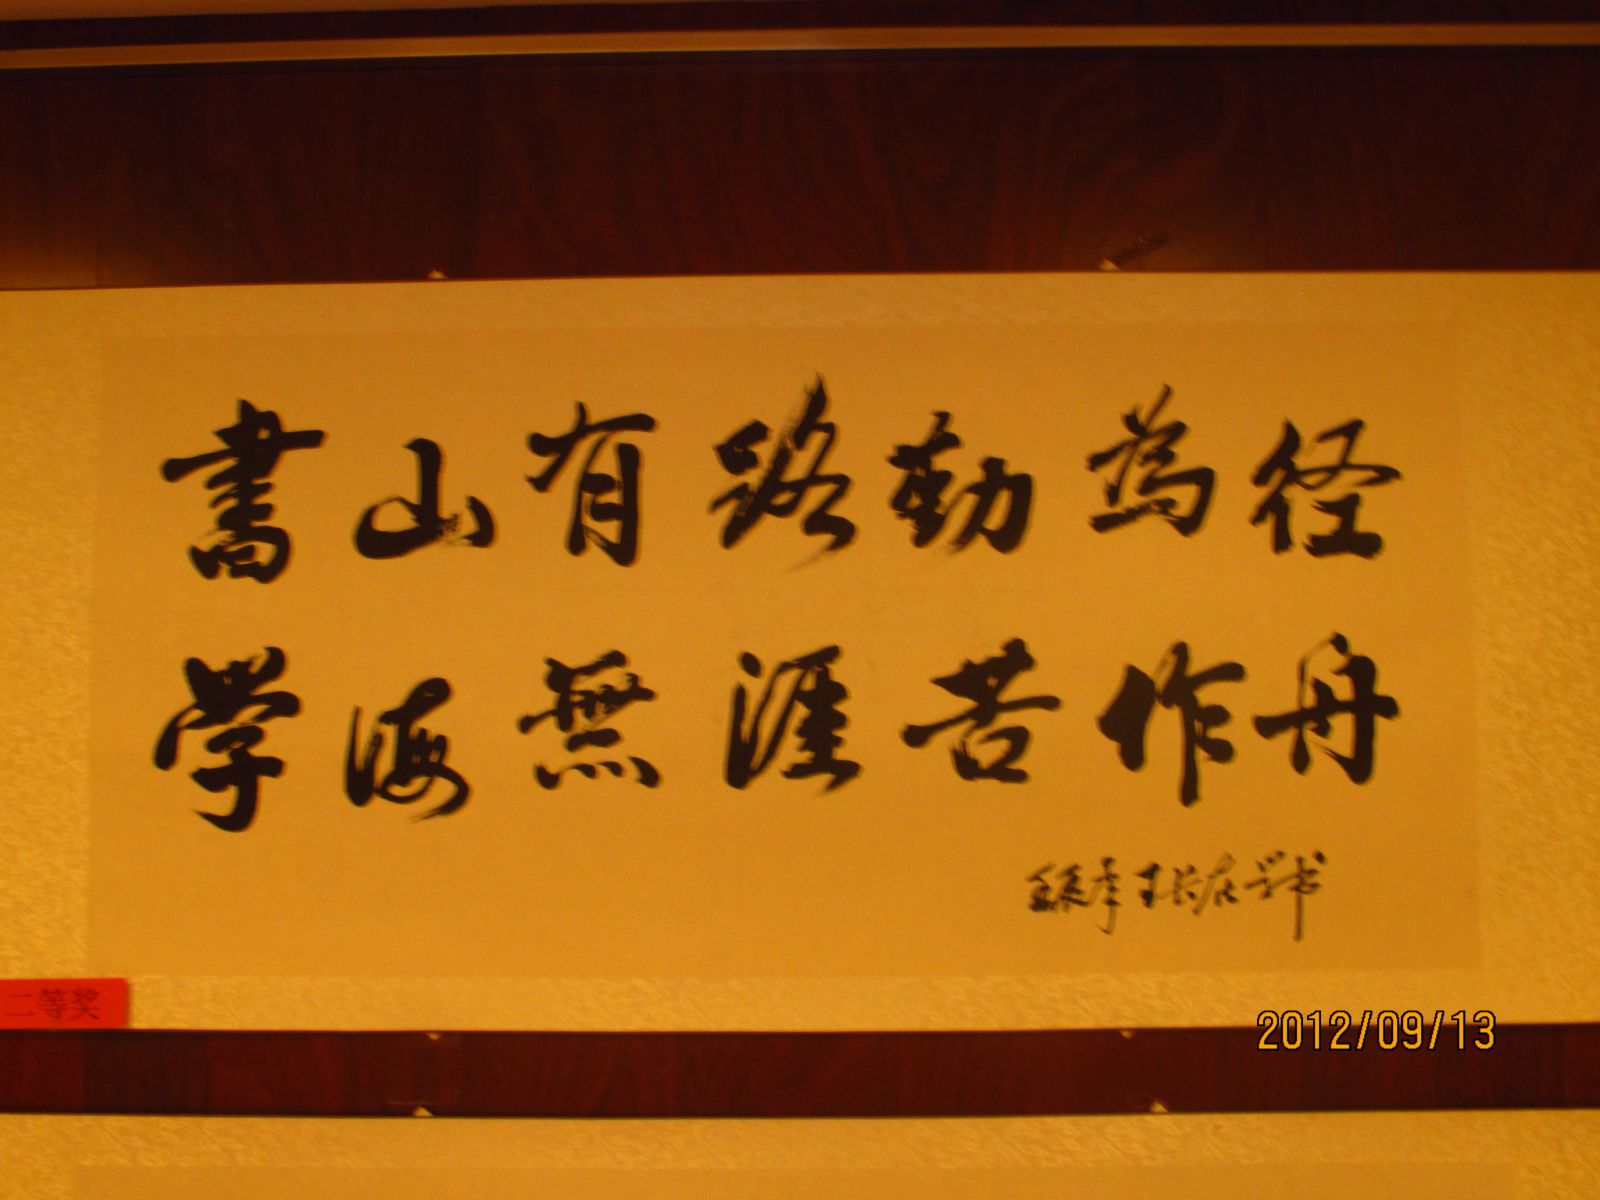 書山有路勤為径
学海無涯苦作舟
二等奖
2012/09/13